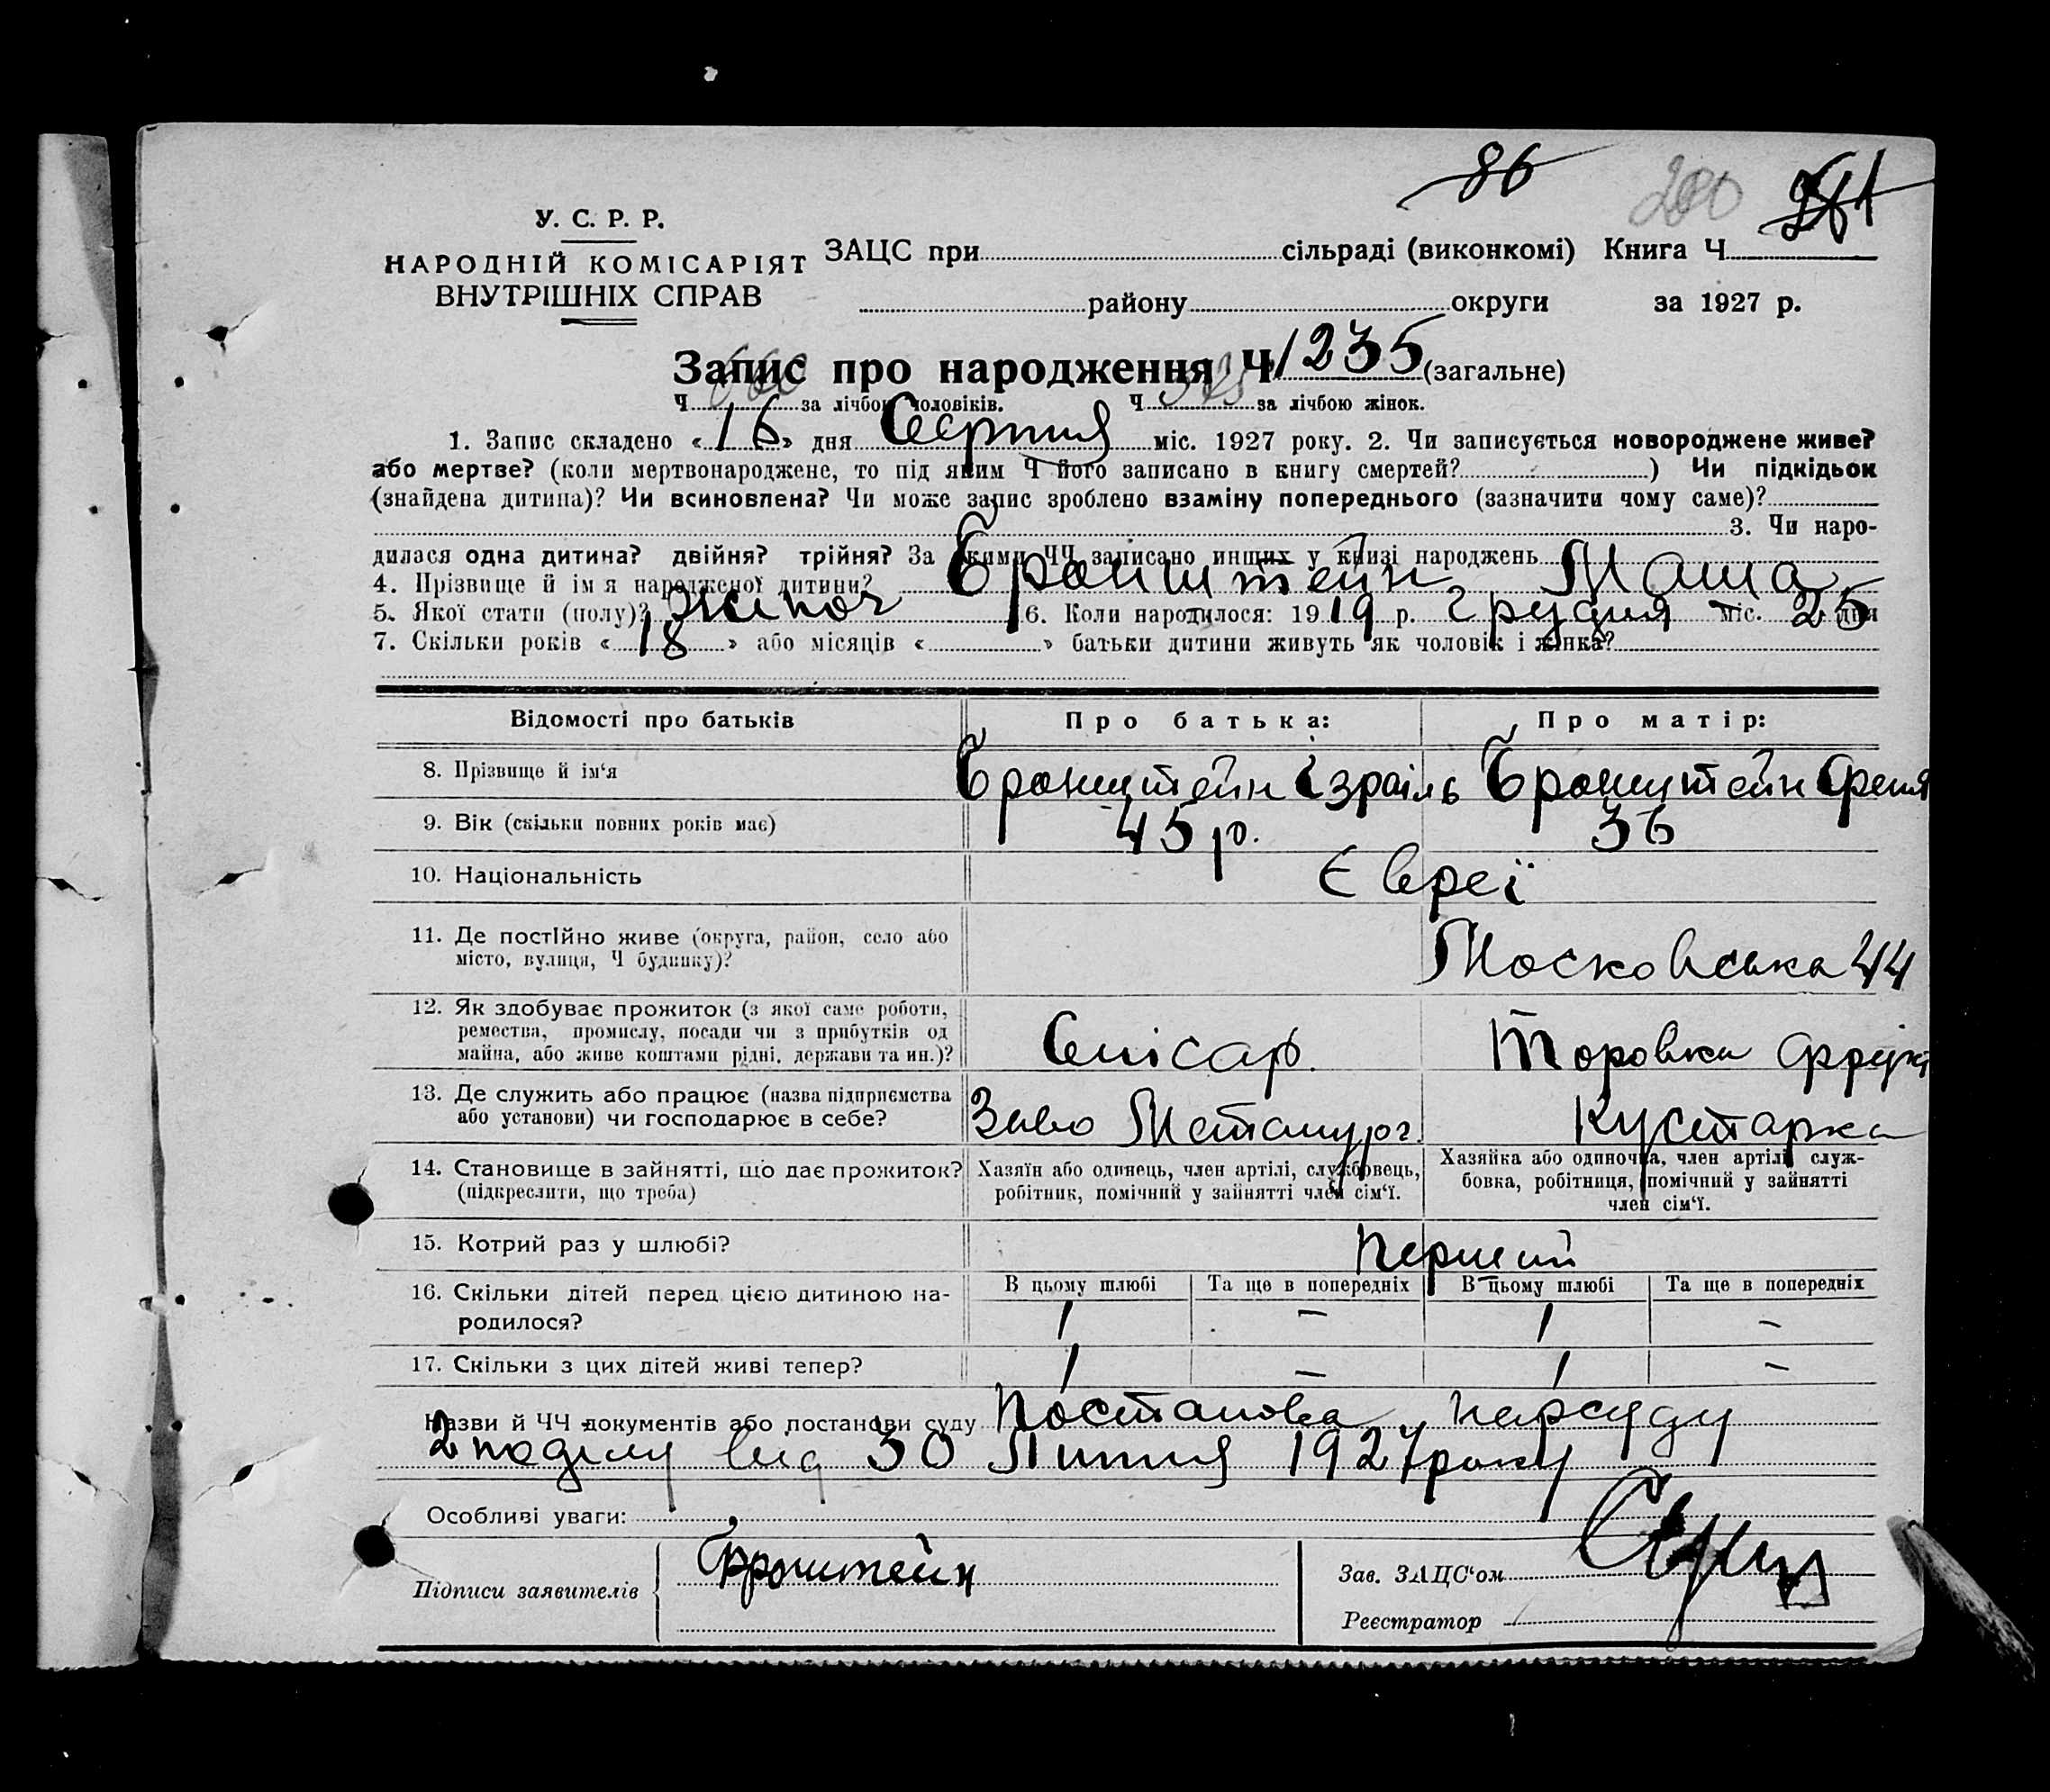 86 200
У. С. Р. Р.
НАРОДНІЙ КОМІСАРІЯТ
ВНУТРІШНІХ СПРАВ
ЗАЦС при сільраді (виконкомі) Книга Ч
району округи за 1927 р.
Запис про народження Ч 1235 (загальне)
Ч за лічбою чоловіків. Ч за лічбою жінок.
1. Запис складено « 16 » дня Серпня міс. 1927 року. 2. Чи записується новороджене живе?
або мертве? (коли мертвонароджене, то під яким Ч його записано в книгу смертей? ) Чи підкідьок
(знайдена дитина)? Чи всиновлена? Чи може запис зроблено взаміну попереднього (зазначити чому саме)?
3. Чи наро-
дилася одна дитина? двійня? трійня? За якими ЧЧ записано инших у книзі народжень
4. Прізвище й ім я народженої дитини? Бронштейн Маша
5. Якої стати (полу)? жіноч 6. Коли народилося: 1919 р. Грудня міс. 25 дня
7. Скільки років « 18 » або місяців « » батьки дитини живуть як чоловік і жінка?
Відомості про батьків Про батька: Про матір:
8. Прізвище й ім‘я Бронштейн Ізраіль Бронштейн Феня
9. Вік (скільки повних років має) 45 р. 36
10. Національність Євреї
11. Де постІйно живе (округа, район, село або
місто, вулиця, Ч будинку)? Московська 44
12. Як здобуває прожиток (з якої саме роботи,
ремества, промислу, посади чи з прибутків од
майна, або живе коштами рідні, держави та ин.)? Слісар. Торовка фрукт
13. Де служить або працює (назва підприємства
або установи) чи господарює в себе? Заво Металург. Кустарка
14. Становище в зайнятті, що дає прожиток?
(підкреслити, що треба)
Хазяїн або одинець, член артілі, службовець,
робітник, помічний у зайнятті член сім‘ї.
Хазяйка або одиночка, член артілі, служ-
бовка, робітниця, помічний у зайнятті
член сім‘ї.
15. Котрий раз у шлюбі? Перший
16. Скільки дітей перед цією дитиною на-
родилося?
В цьому шлюбі Та ще в попередніх В цьому шлюбі Та ще в попередніх
1 – 1 –
17. Скільки з цих дітей живі тепер? 1 – 1 –
Назви й ЧЧ документів або постанови суду Постанова нарсуду
2 поділу від 30 Липня 1927 року
Особливі уваги:
Підписи заявителів Бронштейн
Зав. ЗАЦС‘ом
Реєстратор